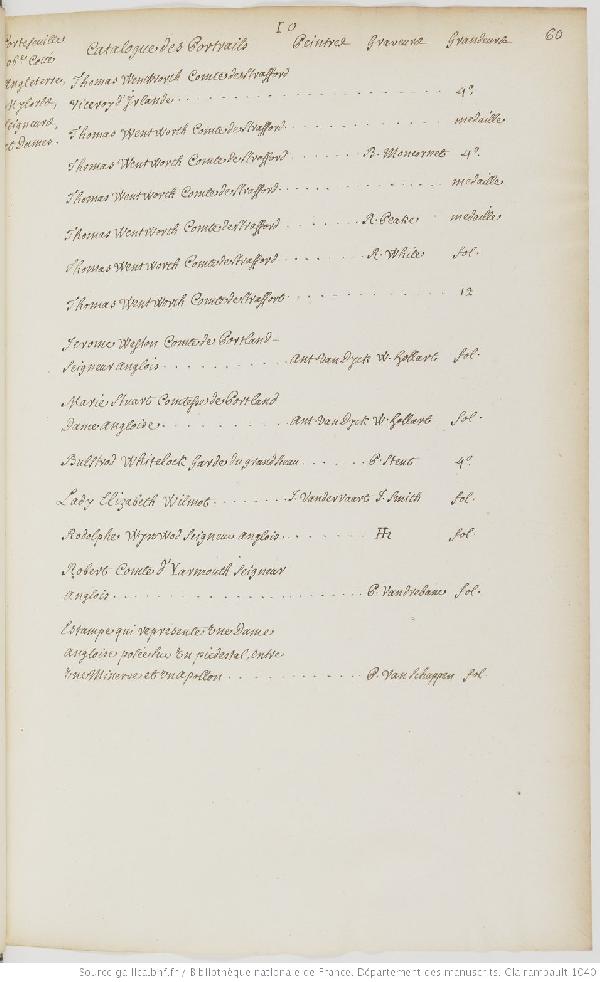 10
60
Catalogue des Portraits Peintres Graveurs Grandeurs
Portefeuille
Angleterre,
Mylords,
Seigneurs,
et Dames.
Thomas Wentworth Comte de Strafford
Viceroy d'Irlande . . . 4º.
Thomas Wentworth Comte de Strafford . . . medaille
Thomas Wentworth Comte de Strafford . . . B. Moncornet 4º.
Thomas Wentworth Comte de Strafford . . . medaille
Thomas Wentworth Comte de Strafford . . . R. Peake . medaille
Thomas Wentworth Comte de Strafford . . . R. White fol.
Thomas Wentworth Comte de Strafford . . . 12
Jerome Weston Comte de Portland
Seigneur Anglois . . . Ant. Van Dyck W. Hollart fol.
Marie Stuart Comtesse de Portland
Dame Angloise . . . Ant. Van Dyck W. Hollart fol.
Bulstrod Whitelock Garde du grand sceau . . . P. Stent 4º.
Lady Elizabeth Wilmot . . . J. Vandervaart J. Smith fol.
Rodolphe Wynwod Seigneur Anglois . . . fol.
Robert Comte d'Yarmouth Seigneur
Anglois . . . P. Vandrebanc fol.
Estampe qui represente Une Dame
Angloise posée Sur Un piedestal, entre
Une Minerve et Un Apollon . . . P. Van Schuppen fol.
Source gallica.bnf.fr / Bibliothèque nationale de France. Département des manuscrits. Clairambault 1040